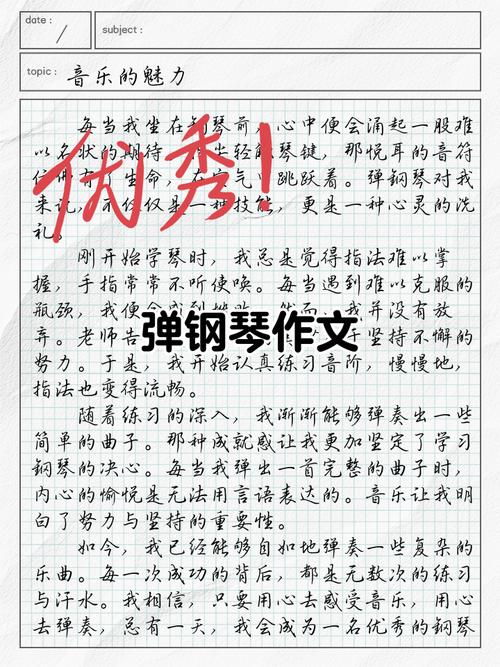 date :
subject :
topic : 音乐的魅力
每当我坐在钢琴前，心中便会涌起一股难
以名状的期待，指尖轻触琴键，那悦耳的音符
仿佛有了生命，在空气中跳跃着。弹钢琴对我
来说，不仅仅是一种技能，更是一种心灵的洗
礼。
优秀！
刚开始学琴时，我总是觉得指法难以掌
握，手指常常不听使唤。每当遇到难以克服的
瓶颈，我便会感到 然而，我并没有放
弃。老师告 于坚持不懈的
弹钢琴作文
努力。于是，我开始认真练习音阶，慢慢地，
指法也变得流畅。
随着练习的深入，我渐渐能够弹奏出一些
简单的曲子。那种成就感让我更加坚定了学习
钢琴的决心。每当我弹出一首完整的曲子时，
内心的愉悦是无法用言语表达的。音乐让我明
白了努力与坚持的重要性。
如今，我已经能够自如地弹奏一些复杂的
乐曲。每一次成功的背后，都是无数次的练习
与汗水。我相信，只要用心去感受音乐，用心
去弹奏，总有一天，我会成为一名优秀的钢琴